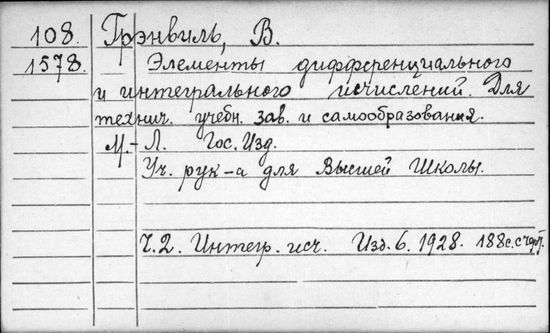 108. Грэнвиль, В.
1578. Элементы дифференциального
и интегрального исчислений. Для
технич. учебн. зав. и самообразования.
М.-Л. Гос. Изд.
Уч. рук-а для Высшей Школы.
Ч.2. Интегр. исч. Изд. 6. 1928. 188с. с черт.